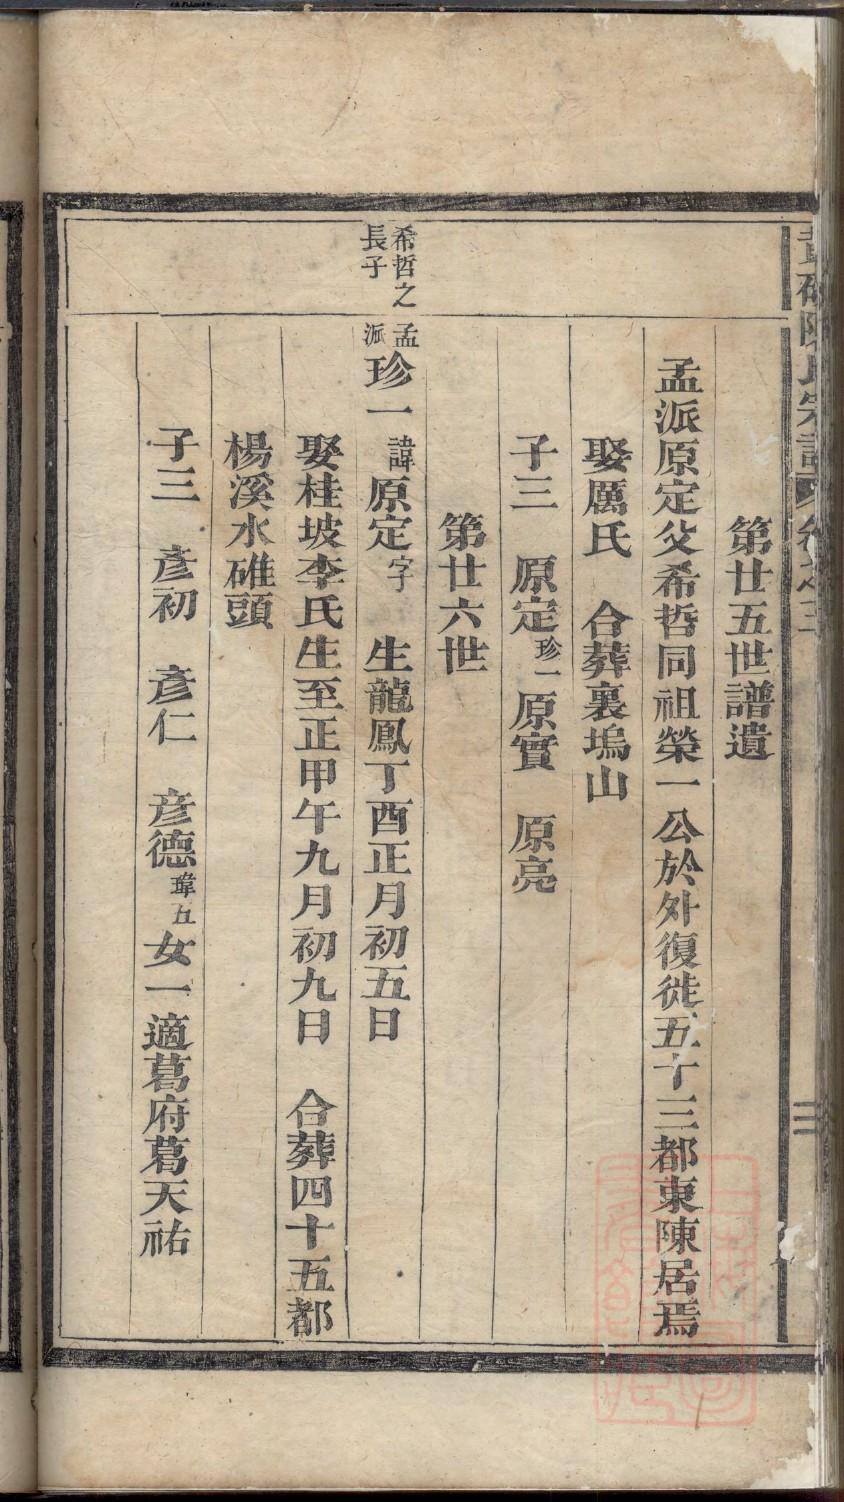 陳氏宗譜 卷之三
第廿五世譜遺
孟派原定父希哲同祖榮一公於外復徙五十三都東陳居焉
娶厲氏 合葬裏塢山
子三 原定珍一原實 原亮
第廿六世
希哲之長子
孟派珍一諱原定字 生龍鳳丁酉正月初五日
娶桂坡李氏生至正甲午九月初九日 合葬四十五都
楊溪水碓頭
子三 彥初 彥仁 彥德瑋五女一適葛府葛天祐